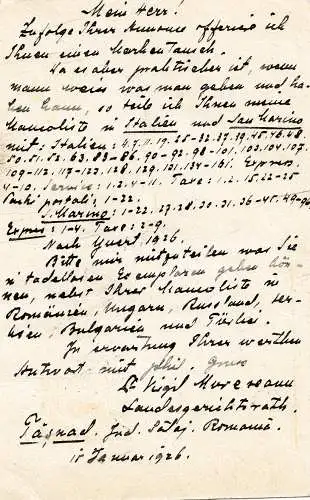 Mein Herr!
Zufolge Ihrer Annonce offerie ich
Ihnen einen Marken Tausch.
Da es aber praktischer ist, wenn
mann weiss was man geben und ha-
ben kann, so teile ich Ihnen meine
Mancoliste in Italien und San Marino
mit: Italien: 4.7.11.19. 25-32. 37.39.45.46.48.
50.51.52.63.83-86. 90-92.98-101.103.104.107.
109-112.117-123.128.129.131.134-161. Expres.
4-10. Service: 1.2.4-11. Taxe: 1.2.15.22-25
Pachi postali: 1-22.
S. Marino: 1-22.27.28.30.31.36-45.49-96
Expres: 1-4. Taxe: 2-9.
Nach Yvert 1926.
Bitte mir mitzuteilen was Sie
in tadellosen Exemplaren geben kön-
nen, nebst Ihrer Mancoliste in
Romänien, Ungarn, Russland, Ser-
bien, Bulgarien und Türkei.
In erwartung Ihrer werthen
Antwort mit phil. gruss
Dr Virgil Moreseanu
Landesgerichtsrath.
Tăşnad. Jud. Sălaj. Romania.
15 Januar 1926.